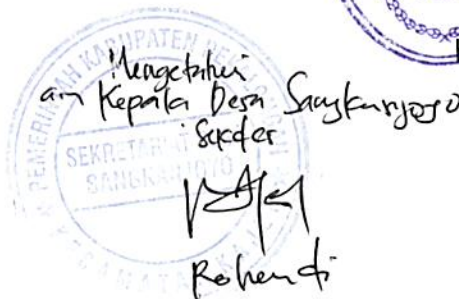 Mengetahui
an Kepala Desa Sangkanjoyo
Sekdes
Rohendi
PEMERINTAH KABUPATEN PEKALONGAN
SEKRETARIAT
SANGKANJOYO
KECAMATAN